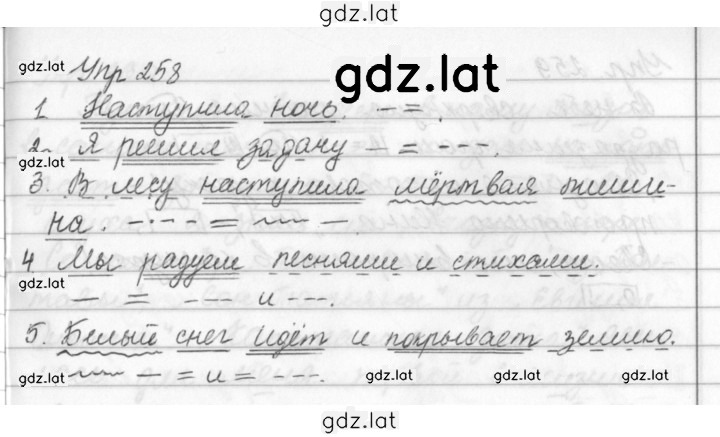 gdz.lat
gdz.lat
Упр 258
gdz.lat
1 Наступила ночь. — = .
gdz.lat
2. Я решил задачу — = - - -.
3. В лесу наступила мёртвая тиши-
на. — · — · — = ~~~ — .
4 Мы радуем песнями и стихами.
gdz.lat
— = - - - и - - -.
5. Белый снег идёт и покрывает землю.
gdz.lat ~~~ — = и = - - -. gdz.lat gdz.lat gdz.lat
gdz.lat